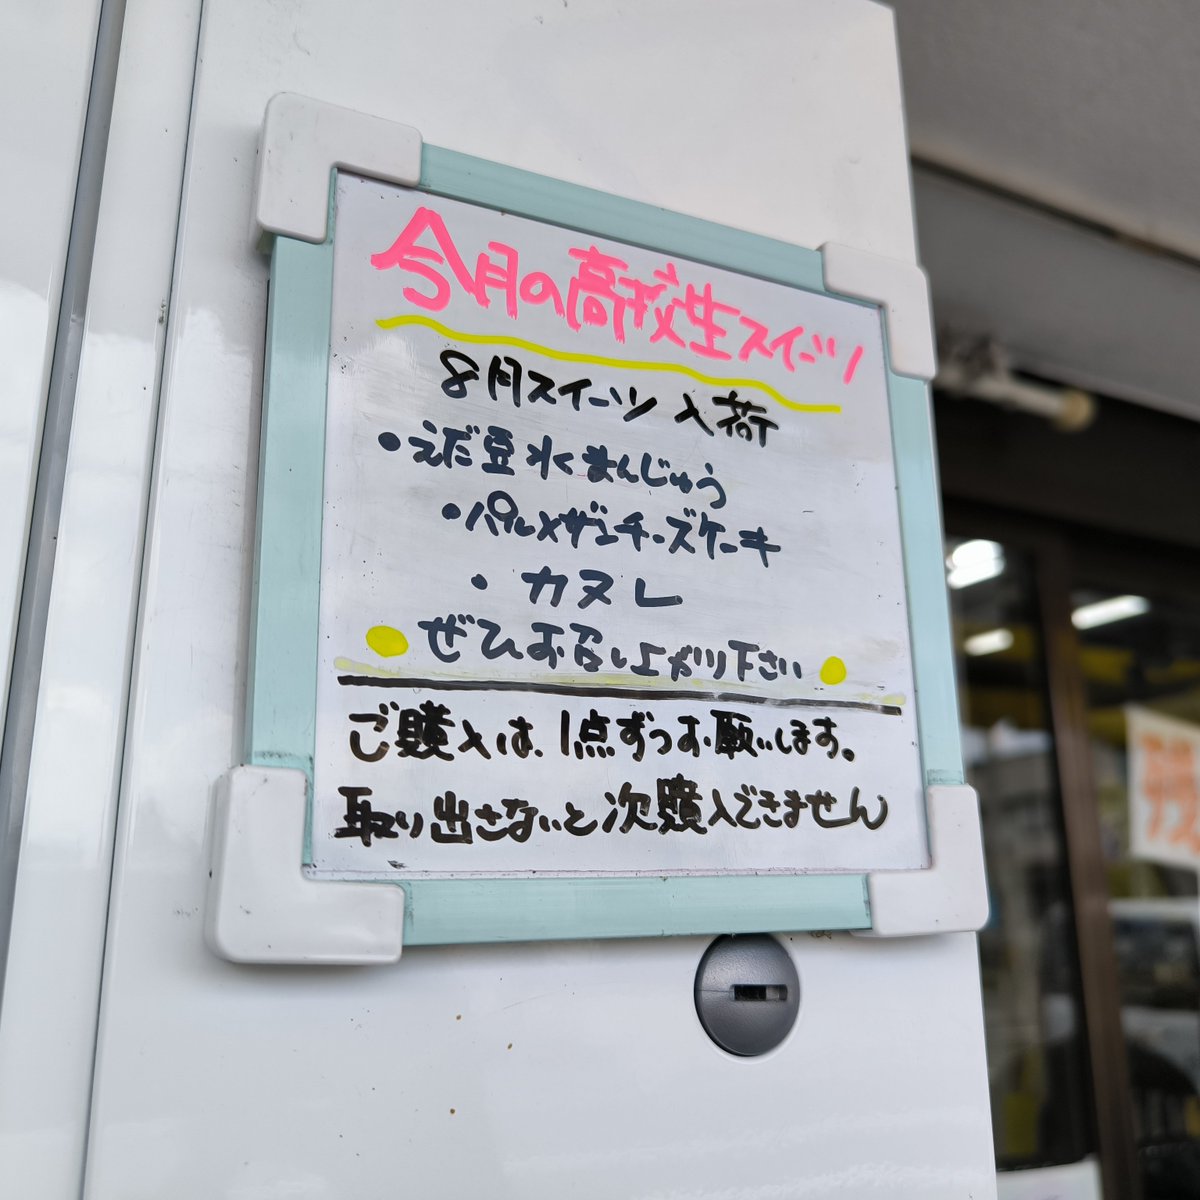 今月の高校生スイーツ
8月スイーツ入荷
・えだ豆水まんじゅう
・パルメザンチーズケーキ
・カヌレ
ぜひお召し上がり下さい
ご購入は、1点ずつお願いします。
取り出さないと次購入できません